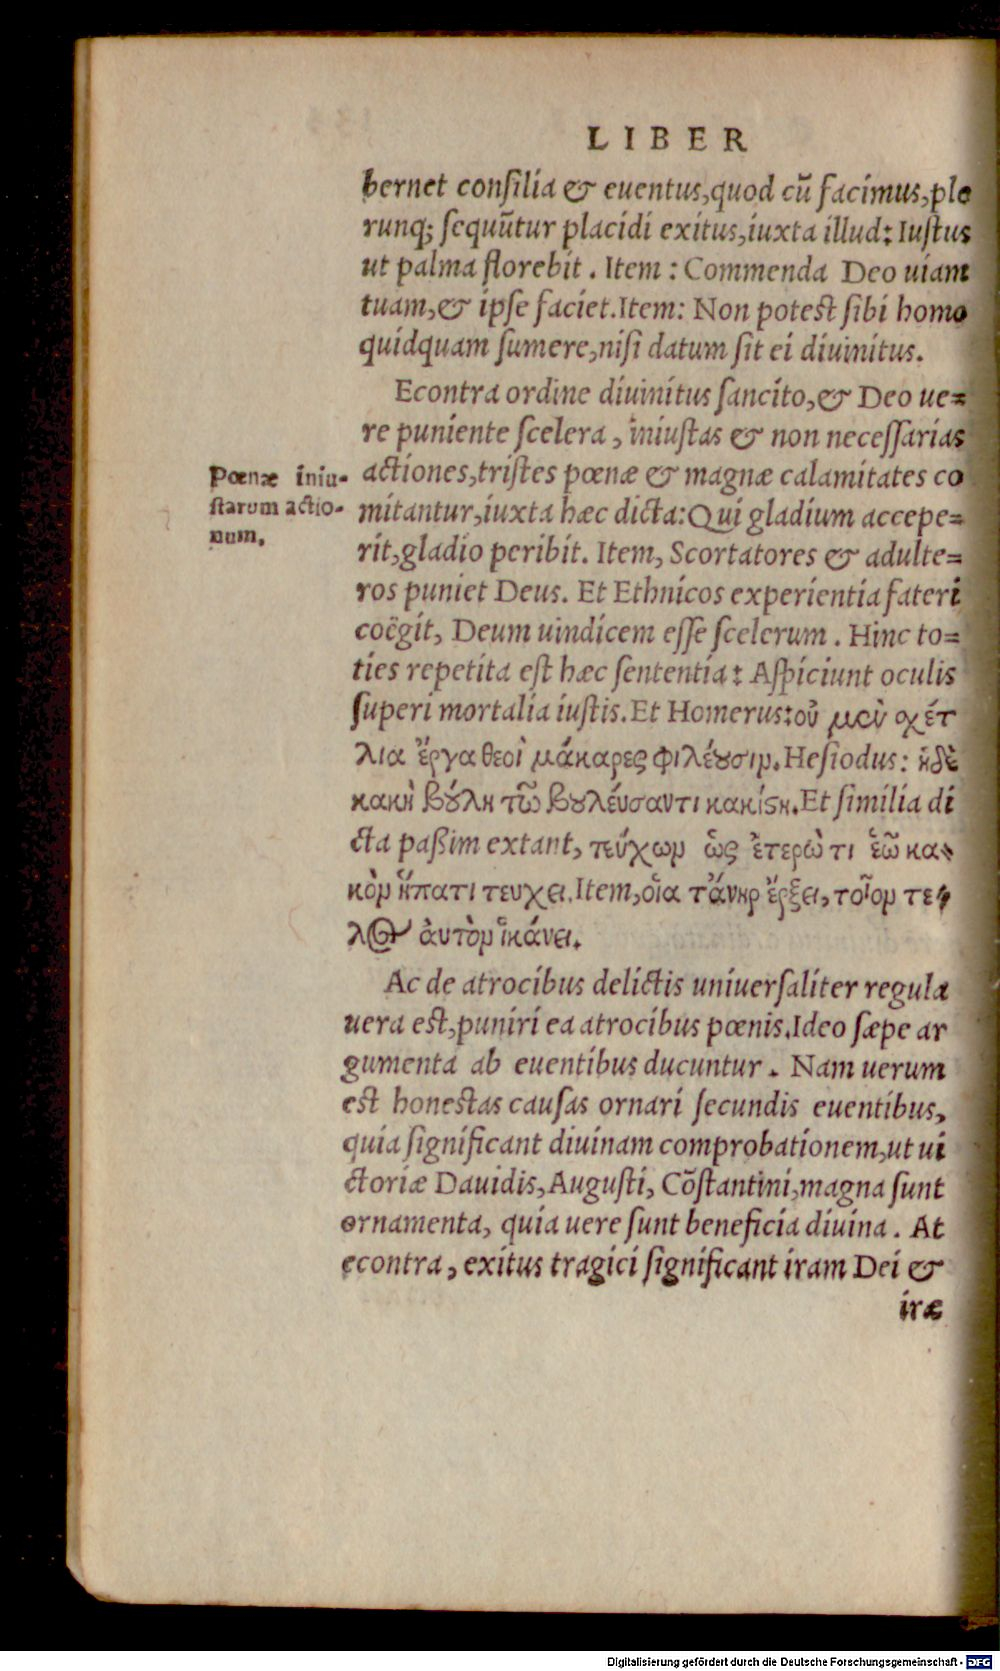 LIBER
bernet consilia & euentus, quod cū facimus, ple
runq; sequūtur placidi exitus, iuxta illud: Iustus
ut palma florebit. Item: Commenda Deo uiam
tuam, & ipse faciet. Item: Non potest sibi homo
quidquam sumere, nisi datum sit ei diuinitus.
Econtra ordine diuinitus sancito, & Deo ue=
re puniente scelera, iniustas & non necessarias
Pœnæ iniu-
starum actio-
num.
actiones, tristes pœnæ & magnæ calamitates co
mitantur, iuxta hæc dicta: Qui gladium accepe=
rit, gladio peribit. Item, Scortatores & adulte=
ros puniet Deus. Et Ethnicos experientia fateri
coëgit, Deum uindicem esse scelerum. Hinc to=
ties repetita est hæc sententia: Aspiciunt oculis
superi mortalia iustis. Et Homerus: οὐ μεὺ χέτ
λια ἔργα θεοὶ μάκαρες φιλέουσιν. Hesiodus: ἡδὲ
κακὴ βούλη τῶ βουλέυσαντι κακίςη. Et similia di
cta paßim extant, τεύχων ὡς ἑτερώ τι ἑῶ κα-
κὸν ἥπατι τευχει. Item, οἷα τ' ἄνηρ ἔρξει, τοῖον τε-
λος ἀυτὸν ἱκάνει.
Ac de atrocibus delictis uniuersaliter regula
uera est, puniri ea atrocibus pœnis. Ideo sæpe ar
gumenta ab euentibus ducuntur. Nam uerum
est honestas causas ornari secundis euentibus,
quia significant diuinam comprobationem, ut ui
ctoriæ Dauidis, Augusti, Cōstantini, magna sunt
ornamenta, quia uere sunt beneficia diuina. At
econtra, exitus tragici significant iram Dei &
iræ
Digitalisierung gefördert durch die Deutsche Forschungsgemeinschaft - DFG